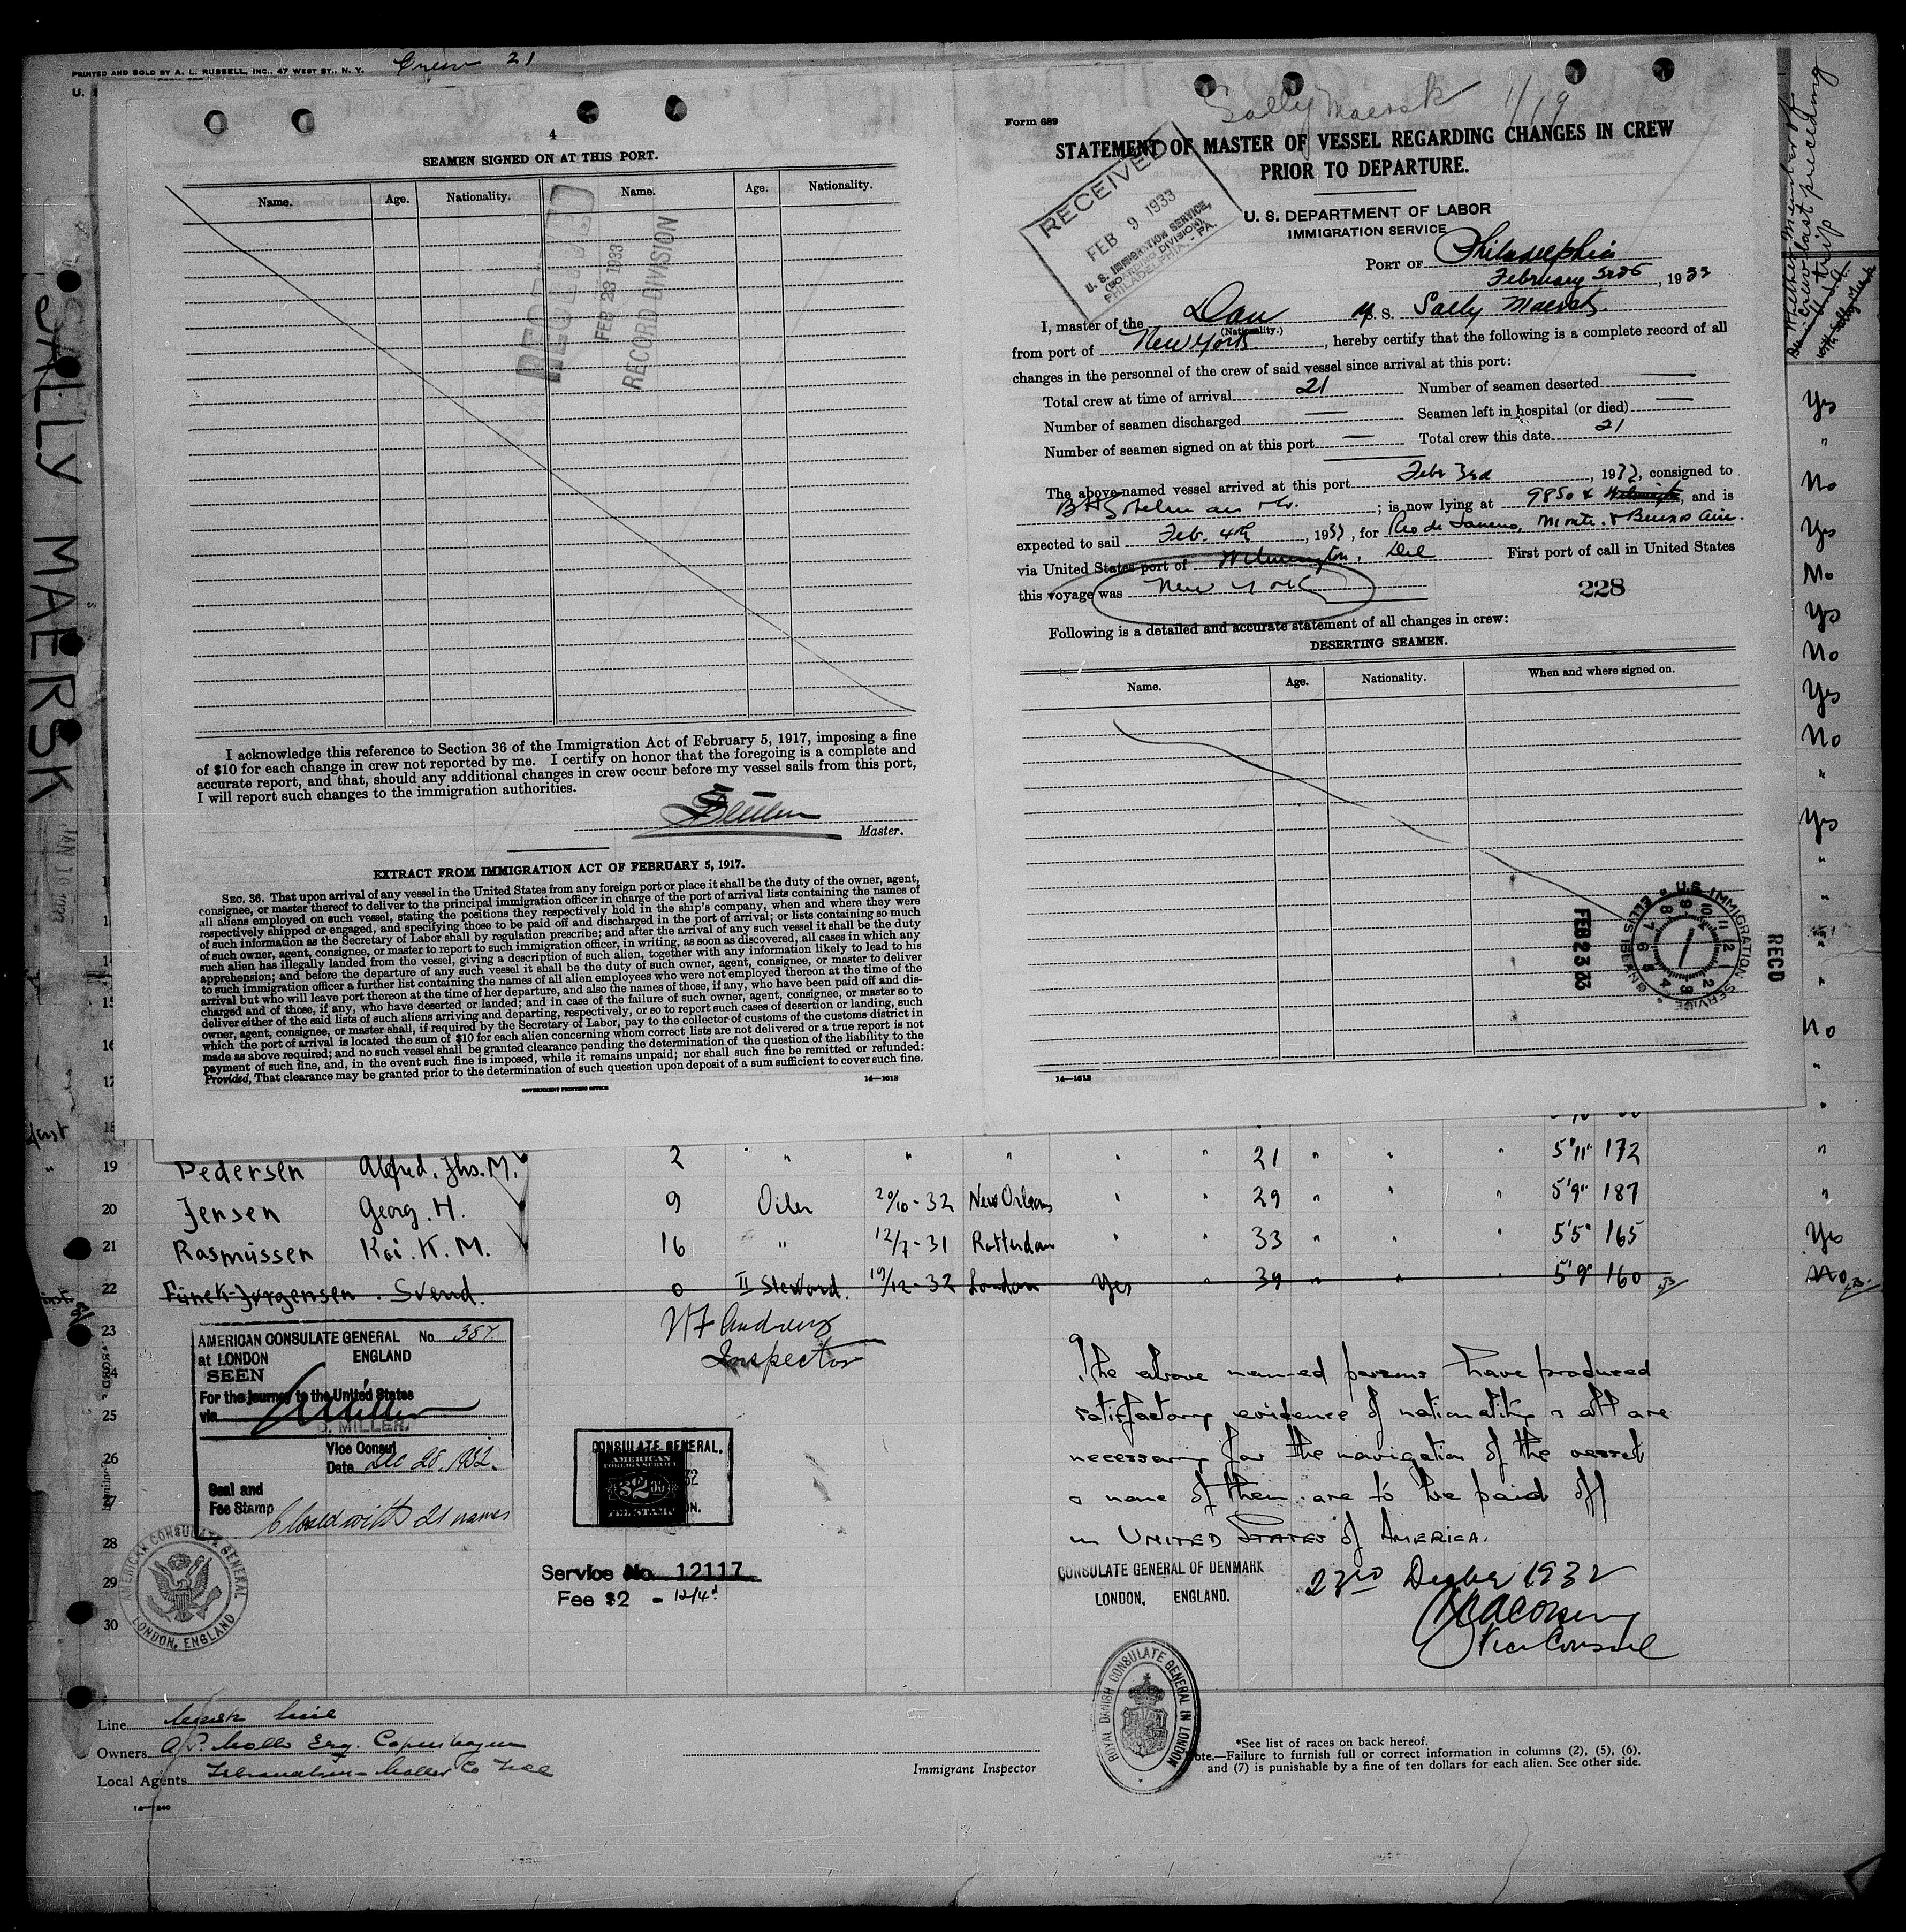 PRINTED AND SOLD BY A. L. RUSSELL, INC., 47 WEST ST., N. Y.
Crew 21
U.
SALLY MAERSK
JAN 19 1933
4
SEAMEN SIGNED ON AT THIS PORT.
Name. Age. Nationality. Name. Age. Nationality.
RECEIVED
FEB 23 1933
RECORD DIVISION
I acknowledge this reference to Section 36 of the Immigration Act of February 5, 1917, imposing a fine
of $10 for each change in crew not reported by me. I certify on honor that the foregoing is a complete and
accurate report, and that, should any additional changes in crew occur before my vessel sails from this port,
I will report such changes to the immigration authorities.
Master.
EXTRACT FROM IMMIGRATION ACT OF FEBRUARY 5, 1917.
SEC. 36. That upon arrival of any vessel in the United States from any foreign port or place it shall be the duty of the owner, agent,
consignee, or master thereof to deliver to the principal immigration officer in charge of the port of arrival lists containing the names of
all aliens employed on such vessel, stating the positions they respectively hold in the ship's company, when and where they were
respectively shipped or engaged, and specifying those to be paid off and discharged in the port of arrival; or lists containing so much
of such information as the Secretary of Labor shall by regulation prescribe; and after the arrival of any such vessel it shall be the duty
of such owner, agent, consignee, or master to report to such immigration officer, in writing, as soon as discovered, all cases in which any
such alien has illegally landed from the vessel, giving a description of such alien, together with any information likely to lead to his
apprehension; and before the departure of any such vessel it shall be the duty of such owner, agent, consignee, or master to deliver
to such immigration officer a further list containing the names of all alien employees who were not employed thereon at the time of the
arrival but who will leave port thereon at the time of her departure, and also the names of those, if any, who have been paid off and dis-
charged and of those, if any, who have deserted or landed; and in case of the failure of such owner, agent, consignee, or master so to
deliver either of the said lists of such aliens arriving and departing, respectively, or so to report such cases of desertion or landing, such
owner, agent, consignee, or master shall, if required by the Secretary of Labor, pay to the collector of customs of the customs district in
which the port of arrival is located the sum of $10 for each alien concerning whom correct lists are not delivered or a true report is not
made as above required; and no such vessel shall be granted clearance pending the determination of the question of the liability to the
payment of such fine, and, in the event such fine is imposed, while it remains unpaid; nor shall such fine be remitted or refunded:
Provided, That clearance may be granted prior to the determination of such question upon deposit of a sum sufficient to cover such fine.
GOVERNMENT PRINTING OFFICE 14—1613
Sally Maersk 1/19
Form 689
STATEMENT OF MASTER OF VESSEL REGARDING CHANGES IN CREW
PRIOR TO DEPARTURE.
RECEIVED
FEB 9 1933
U. S. IMMIGRATION SERVICE,
(BOARDING DIVISION)
PHILADELPHIA - PA.
U. S. DEPARTMENT OF LABOR
IMMIGRATION SERVICE
PORT OF Philadelphia
February 3rd, 1933
I, master of the Dan M. S. Sally Maersk
(Nationality.)
from port of New York, hereby certify that the following is a complete record of all
changes in the personnel of the crew of said vessel since arrival at this port:
Total crew at time of arrival 21 Number of seamen deserted —
Number of seamen discharged — Seamen left in hospital (or died) —
Number of seamen signed on at this port — Total crew this date 21
The above-named vessel arrived at this port Febr 3rd, 1933, consigned to
; is now lying at , and is
expected to sail Feb. 4th, 1933, for Rio de Janeiro, Monte. & Buenos Aire.
via United States port of Wilmington, Del First port of call in United States
this voyage was New York
228
Following is a detailed and accurate statement of all changes in crew:
DESERTING SEAMEN.
Name. Age. Nationality. When and where signed on.
U.S. IMMIGRATION SERVICE
ELLIS ISLAND
FEB 23 33
RECD
14—1613
Whether member of
crew last preceding
trip
Yes
"
No
Yes
No
Yes
No
Yes
No
"
Yes
"
"
"
"
No
"
"
18
19 Pedersen Alfred. Jhs. M. 2 " " " " " 21 " " " 5'11" 172 "
20 Jensen Georg. H. 9 Oiler 20/10-32 New Orleans " " 29 " " " 5'9" 187 "
21 Rasmussen Kai. K. M. 16 " 12/7-31 Rotterdam " " 33 " " " 5'5" 165 Yes
22 Fünck-Jørgensen. Svend. 0 II Steward. 19/12-32 London Yes " 39 " " " 5'9" 160 No
23
24
25
26
27
28
29
30
Inspector
AMERICAN CONSULATE GENERAL No. 387
at LONDON ENGLAND
SEEN
For the journey to the United States
via
D. MILLER.
Vice Consul
Date Dec 28, 1932.
Seal and
Fee Stamp
Closed with 21 names
AMERICAN CONSULATE GENERAL
LONDON, ENGLAND
CONSULATE GENERAL.
AMERICAN
FOREIGN SERVICE
$2.00
FEE STAMP
Service No. 12117
Fee $2 = 12/4d
The above named persons have produced
satisfactory evidence of nationality & all are
necessary for the navigation of the vessel
& none of them are to be paid off
in UNITED STATES of AMERICA.
CONSULATE GENERAL OF DENMARK
LONDON, ENGLAND.
23rd December 1932
Vice Consul
ROYAL DANISH CONSULATE GENERAL IN LONDON
Line Maersk Line
Owners A.P. Moller Esq. Copenhagen
Local Agents
Immigrant Inspector
*See list of races on back hereof.
Note.—Failure to furnish full or correct information in columns (2), (5), (6),
and (7) is punishable by a fine of ten dollars for each alien. See other side.
14—240